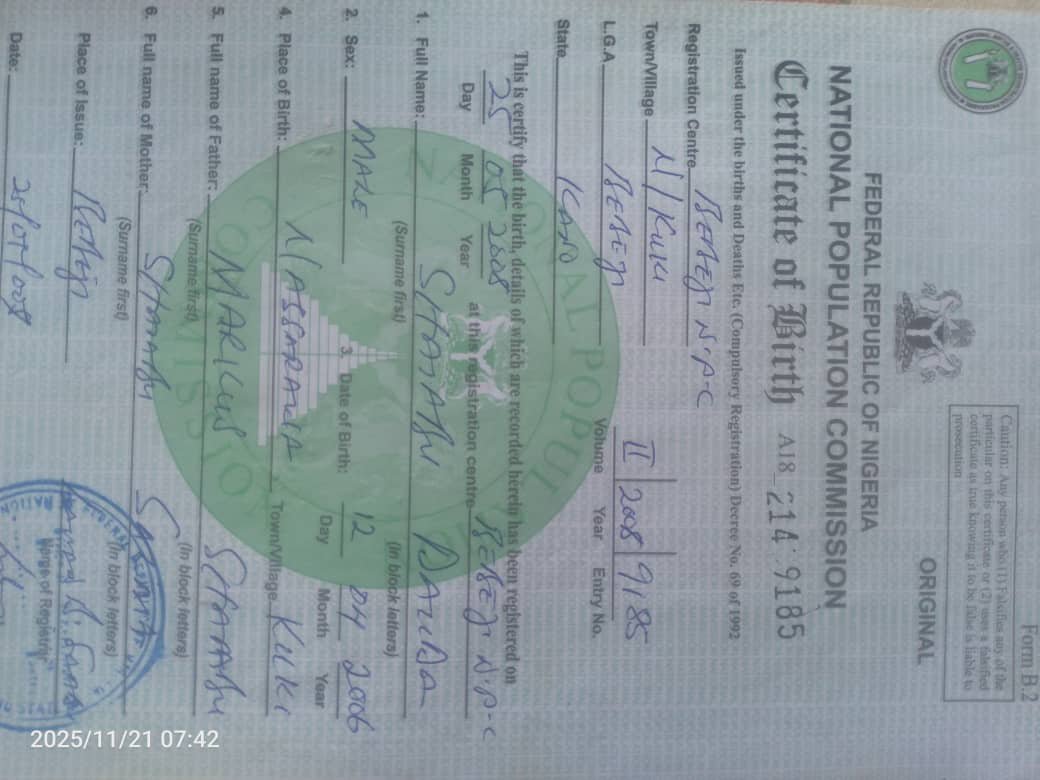 Form B.2
Caution: Any person who (1) Falsifies any of the
particular on this certificate or (2) uses a falsified
certificate as true knowing it to be false is liable to
prosecution
ORIGINAL
FEDERAL REPUBLIC OF NIGERIA
NATIONAL POPULATION COMMISSION
Certificate of Birth A18 214 9185
Issued under the births and Deaths Etc. (Compulsory Registration) Decree No. 69 of 1992
Registration Centre BEBEJI N.P.C
Town/Village N/KUKI II 2008 9185
L.G.A BEBEJI Volume Year Entry No.
State KANO
This is certify that the birth, details of which are recorded herein has been registered on
25 05 2008 at this registration centre BEBEJI N.P.C
Day Month Year
1. Full Name: DAUDA
(Surname first) (In block letters)
2. Sex: MALE 3. Date of Birth: 12 04 2006
Day Month Year
4. Place of Birth: N/ASSARAWA Town/Village KUKI
5. Full name of Father: MARKUS
(Surname first) (In block letters)
6. Full name of Mother:
(Surname first) (In block letters)
Place of Issue: Bebeji
Name of Registrar
Date:
NATIONAL POPULATION COMMISSION
2025/11/21 07:42